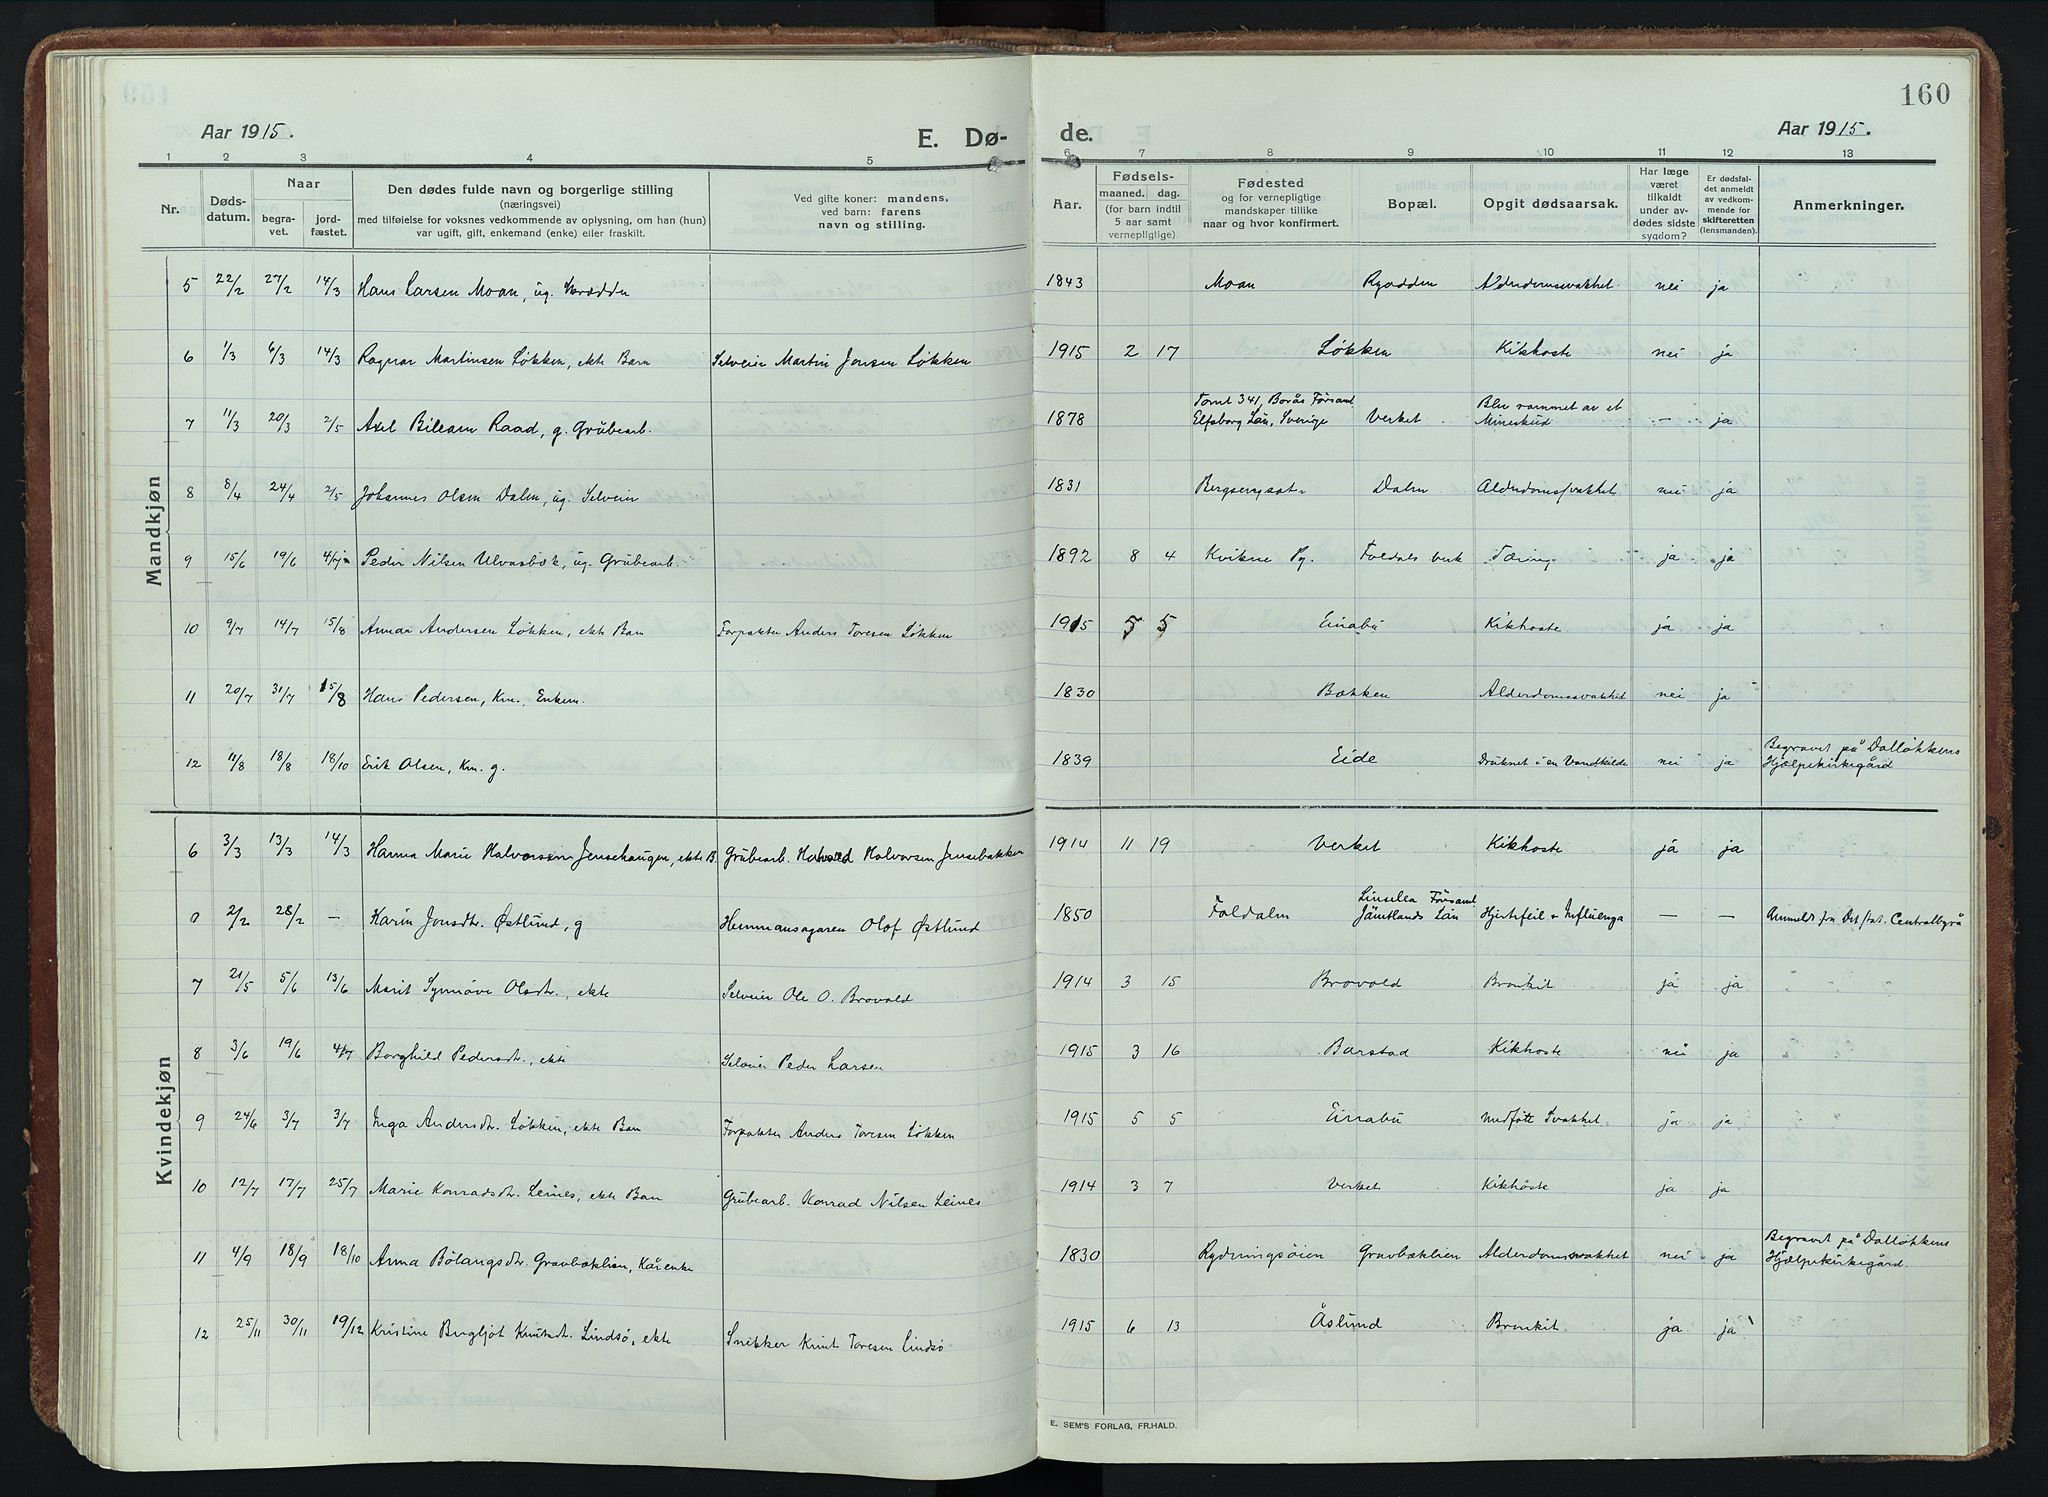 160
Aar 1915.
E. Dø-
de.
Aar 1915.
1 2 3 4 5 6 7 8 9 10 11 12 13
Nr.
Døds-
datum.
Naar
begra-
vet.
jord-
fæstet.
Den dødes fulde navn og borgerlige stilling
(næringsvei)
med tilføielse for voksnes vedkommende av oplysning, om han (hun)
var ugift, gift, enkemand (enke) eller fraskilt.
Ved gifte koner: mandens,
ved barn: farens
navn og stilling.
Aar.
Fødsels-
maaned. dag.
(for barn indtil
5 aar samt
vernepligtige)
Fødested
og for vernepligtige
mandskaper tillike
naar og hvor konfirmert.
Bopæl.
Opgit dødsaarsak.
Har læge
været
tilkaldt
under av-
dødes sidste
sygdom?
Er dødsfal-
det anmeldt
av vedkom-
mende for
skifteretten
(lensmanden).
Anmerkninger.
Mandkjøn
5 22/2 27/2 14/3 Hans Larsen Moan, ug. Skrædder 1843 Moan Alderdomssvakhet nei ja
6 1/3 6/3 14/3 Ragnar Martinsen Løkken, ekte Barn Selveier Martin Jonsen Løkken 1915 2 17 Løkken Kikhoste nei ja
7 11/3 20/3 2/5 Axel Bileam Raad, g. Grubearb. 1878 Tomt 341, Borås Førsaml.
Elfsborg Län, Sverige Verket Blev rammet av et
Mineskud — ja
8 8/4 24/4 2/5 Johannes Olsen Dalen, ug. Selveier 1831 Dalen Alderdomssvakhet nei ja
9 15/6 19/6 Peder Nilsen Ulvasbæk, ug. Grubearb. 1892 8 4 Kvikne Pg. Foldals Verk Tæring ja ja
10 9/7 14/7 15/8 Annar Andersen Løkken, ekte Barn Forpakter Anders Toresen Løkken 1915 5 5 Einabu Kikhoste ja ja
11 20/7 31/7 15/8 Hans Pedersen, Km., Enkem. 1830 Bækken Alderdomssvakhet nei ja
12 11/8 18/8 18/10 Erik Olsen, Km. g. 1839 Eide Druknet i en Vandkilde nei ja Begravet på Dalløkkens
Hjælpekirkegård
Kvindekjøn
6 3/3 13/3 14/3 Hanna Marie Halvorsen Jensehaugen, ekte B. Grubearb. Halvord Halvorsen Jensebakken 1914 11 19 Verket Kikhoste ja ja
0 2/2 28/2 — Karin Jonsdtr. Østlund, g Hemmansägaren Olof Østlund 1850 Foldalen Linsella Førsaml.
Jämtlands Län Hjertefeil + Influenza — — Anmeldt fra Det stat. Centralbyrå
7 21/5 5/6 13/6 Marit Synnøve Olsdtr., ekte Selveier Ole O. Brovold 1914 3 15 Brovold Bronkit ja ja
8 3/6 19/6 4/7 Borghild Pedersdtr., ekte Selveier Peder Larsen 1915 3 16 Barstad Kikhoste nei ja
9 24/6 3/7 3/7 Inga Andersdtr. Løkken, ekte Barn Forpakter Anders Toresen Løkken 1915 5 5 Einabu Medfødte Svakhet. ja ja
10 12/7 17/7 25/7 Marie Konradsdtr. Leines, ekte Barn Grubearb. Konrad Nilsen Leines 1914 3 7 Verket Kikhoste ja ja
11 4/9 18/9 18/10 Anna Gravbæklien, Kårenke 1830 Rydningsøien Gravbæklien Alderdomssvakhet nei ja Begravet på Dalløkkens
Hjælpekirkegård.
12 25/11 30/11 19/12 Kristine Bergljot Knutsdtr. Lindsø, ekte Snikker Knut Toresen Lindsø 1915 6 13 Åslund Bronkit. ja ja
E. SEM'S FORLAG, FR.HALD.